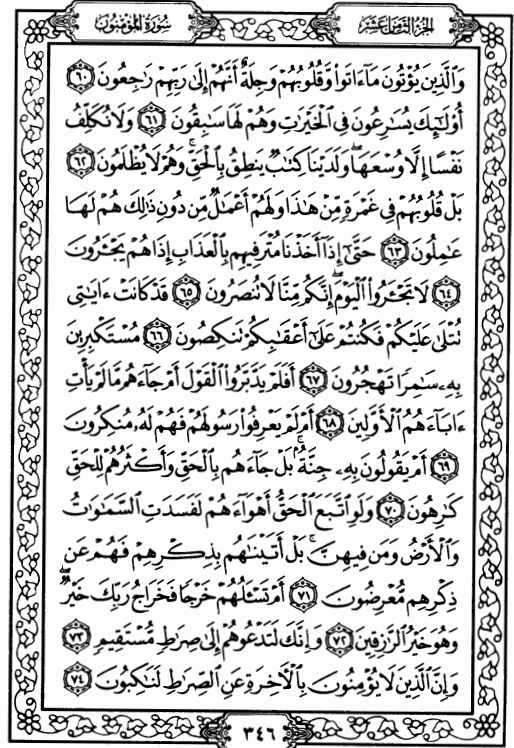 سورة المؤمنون
الجزء الثامن عشر
وَالَّذِينَ يُؤْتُونَ مَآ ءَاتَوا۟ وَّقُلُوبُهُمْ وَجِلَةٌ أَنَّهُمْ إِلَىٰ رَبِّهِمْ رَٰجِعُونَ ٦٠
أُو۟لَٰٓئِكَ يُسَٰرِعُونَ فِى ٱلْخَيْرَٰتِ وَهُمْ لَهَا سَٰبِقُونَ ٦١ وَلَا نُكَلِّفُ
نَفْسًا إِلَّا وُسْعَهَا ۖ وَلَدَيْنَا كِتَٰبٌ يَنطِقُ بِٱلْحَقِّ ۚ وَهُمْ لَا يُظْلَمُونَ ٦٢
بَلْ قُلُوبُهُمْ فِى غَمْرَةٍ مِّنْ هَٰذَا وَلَهُمْ أَعْمَٰلٌ مِّن دُونِ ذَٰلِكَ هُمْ لَهَا
عَٰمِلُونَ ٦٣ حَتَّىٰٓ إِذَآ أَخَذْنَا مُتْرَفِيهِم بِٱلْعَذَابِ إِذَا هُمْ يَجْـَٔرُونَ
٦٤ لَا تَجْـَٔرُوا۟ ٱلْيَوْمَ ۖ إِنَّكُم مِّنَّا لَا تُنصَرُونَ ٦٥ قَدْ كَانَتْ ءَايَٰتِى
تُتْلَىٰ عَلَيْكُمْ فَكُنتُمْ عَلَىٰٓ أَعْقَٰبِكُمْ تَنكِصُونَ ٦٦ مُسْتَكْبِرِينَ
بِهِۦ سَٰمِرًا تَهْجُرُونَ ٦٧ أَفَلَمْ يَدَّبَّرُوا۟ ٱلْقَوْلَ أَمْ جَآءَهُم مَّا لَمْ يَأْتِ
ءَابَآءَهُمُ ٱلْأَوَّلِينَ ٦٨ أَمْ لَمْ يَعْرِفُوا۟ رَسُولَهُمْ فَهُمْ لَهُۥ مُنكِرُونَ
٦٩ أَمْ يَقُولُونَ بِهِۦ جِنَّةٌۢ ۚ بَلْ جَآءَهُم بِٱلْحَقِّ وَأَكْثَرُهُمْ لِلْحَقِّ
كَٰرِهُونَ ٧٠ وَلَوِ ٱتَّبَعَ ٱلْحَقُّ أَهْوَآءَهُمْ لَفَسَدَتِ ٱلسَّمَٰوَٰتُ
وَٱلْأَرْضُ وَمَن فِيهِنَّ ۚ بَلْ أَتَيْنَٰهُم بِذِكْرِهِمْ فَهُمْ عَن
ذِكْرِهِم مُّعْرِضُونَ ٧١ أَمْ تَسْـَٔلُهُمْ خَرْجًا فَخَرَاجُ رَبِّكَ خَيْرٌ ۖ
وَهُوَ خَيْرُ ٱلرَّٰزِقِينَ ٧٢ وَإِنَّكَ لَتَدْعُوهُمْ إِلَىٰ صِرَٰطٍ مُّسْتَقِيمٍ ٧٣
وَإِنَّ ٱلَّذِينَ لَا يُؤْمِنُونَ بِٱلْءَاخِرَةِ عَنِ ٱلصِّرَٰطِ لَنَٰكِبُونَ ٧٤
٣٤٦